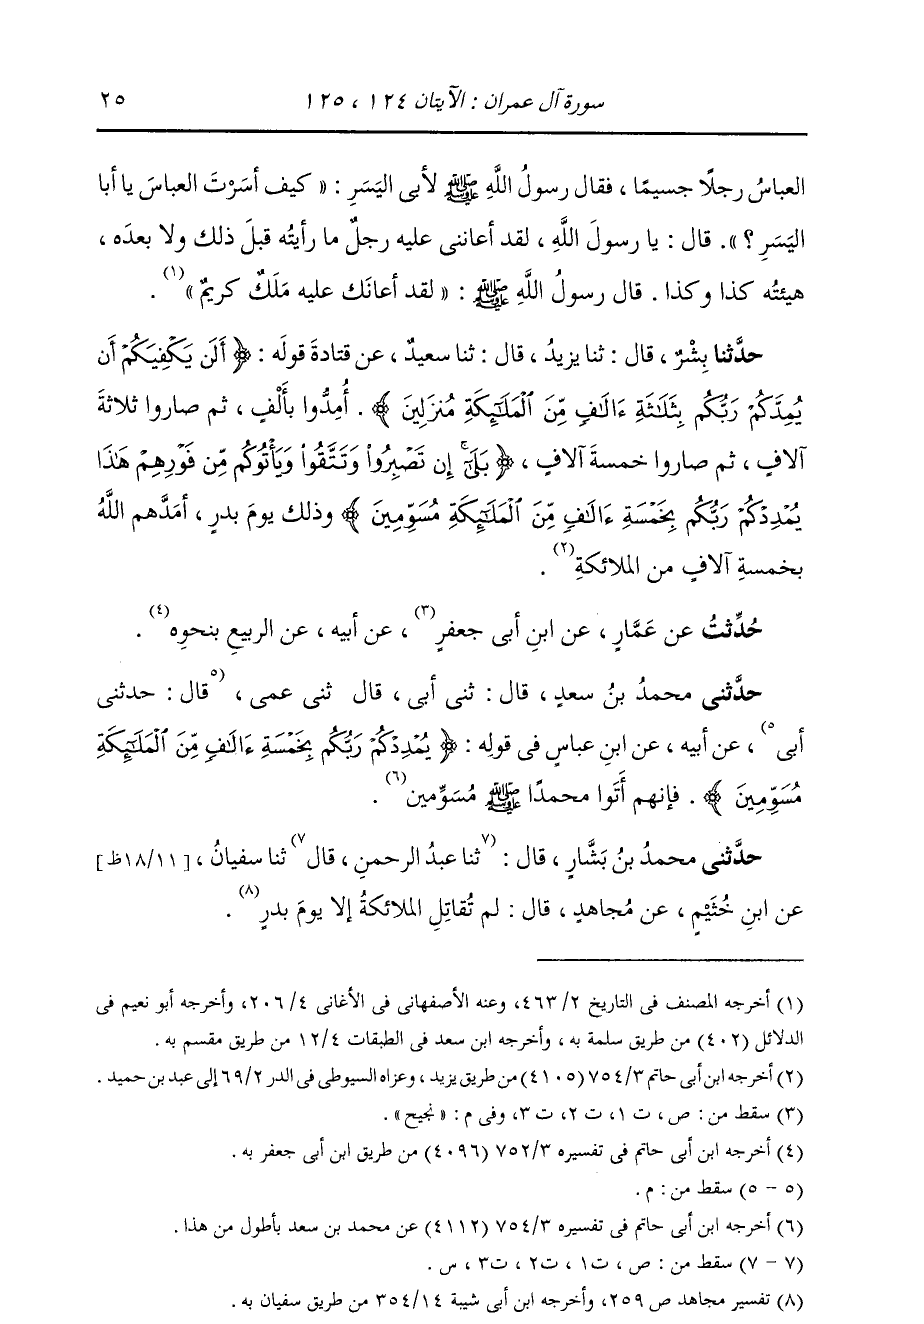 سورة آل عمران : الآيتان ١٢٤ ، ١٢٥ ٢٥
العباسُ رجلًا جسيمًا ، فقال رسولُ اللَّهِ ﷺ لأبى اليَسَرِ : « كيف أسَرْتَ العباسَ يا أبا
اليَسَرِ ؟ ». قال : يا رسولَ اللَّهِ ، لقد أعاننى عليه رجلٌ ما رأيتُه قبلَ ذلك ولا بعدَه ،
هيئتُه كذا وكذا . قال رسولُ اللَّهِ ﷺ : « لقد أعانَك عليه مَلَكٌ كريمٌ »(١) .
حدَّثنا بِشْرٌ ، قال : ثنا يزيدُ ، قال : ثنا سعيدٌ ، عن قتادةَ قولَه : ﴿ أَلَن يَكْفِيَكُمْ أَن
يُمِدَّكُمْ رَبُّكُم بِثَلَٰثَةِ ءَالَٰفٍ مِّنَ ٱلْمَلَٰٓئِكَةِ مُنزَلِينَ ﴾ . أُمِدُّوا بأَلْفٍ ، ثم صاروا ثلاثةَ
آلافٍ ، ثم صاروا خمسةَ آلافٍ ، ﴿ بَلَىٰٓۚ إِن تَصْبِرُوا۟ وَتَتَّقُوا۟ وَيَأْتُوكُم مِّن فَوْرِهِمْ هَٰذَا
يُمْدِدْكُمْ رَبُّكُم بِخَمْسَةِ ءَالَٰفٍ مِّنَ ٱلْمَلَٰٓئِكَةِ مُسَوِّمِينَ ﴾ وذلك يومَ بدرٍ ، أمَدَّهم اللَّهُ
بخمسةِ آلافٍ من الملائكةِ(٢) .
حُدِّثتُ عن عَمَّارٍ ، عن ابنِ أبى جعفرٍ(٣) ، عن أبيه ، عن الربيعِ بنحوِه(٤) .
حدَّثنى محمدُ بنُ سعدٍ ، قال : ثنى أبى ، قال ثنى عمى ، (٥قال : حدثنى
أبى٥) ، عن أبيه ، عن ابنِ عباسٍ فى قولِه : ﴿ يُمْدِدْكُمْ رَبُّكُم بِخَمْسَةِ ءَالَٰفٍ مِّنَ ٱلْمَلَٰٓئِكَةِ
مُسَوِّمِينَ ﴾ . فإنهم أَتَوا محمدًا ﷺ مُسَوِّمين(٦) .
حدَّثنى محمدُ بنُ بَشَّارٍ ، قال : (٧ثنا عبدُ الرحمنِ ، قال٧) ثنا سفيانُ ، [١٨/١١ظ]
عن ابنِ خُثَيْمٍ ، عن مُجاهدٍ ، قال : لم تُقاتِلِ الملائكةُ إلا يومَ بدرٍ(٨) .
(١) أخرجه المصنف فى التاريخ ٤٦٣/٢، وعنه الأصفهانى فى الأغانى ٢٠٦/٤، وأخرجه أبو نعيم فى
الدلائل (٤٠٢) من طريق سلمة به ، وأخرجه ابن سعد فى الطبقات ١٢/٤ من طريق مقسم به .
(٢) أخرجه ابن أبى حاتم ٧٥٤/٣ (٤١٠٥) من طريق يزيد ، وعزاه السيوطى فى الدر ٦٩/٢ إلى عبد بن حميد .
(٣) سقط من : ص ، ت ١، ت ٢، ت ٣، وفى م : « نجيح » .
(٤) أخرجه ابن أبى حاتم فى تفسيره ٧٥٢/٣ (٤٠٩٦) من طريق ابن أبى جعفر به .
(٥ - ٥) سقط من : م .
(٦) أخرجه ابن أبى حاتم فى تفسيره ٧٥٤/٣ (٤١١٢) عن محمد بن سعد بأطول من هذا .
(٧ - ٧) سقط من : ص ، ت١ ، ت٢ ، ت٣ ، س .
(٨) تفسير مجاهد ص ٢٥٩، وأخرجه ابن أبى شيبة ٣٥٤/١٤ من طريق سفيان به .